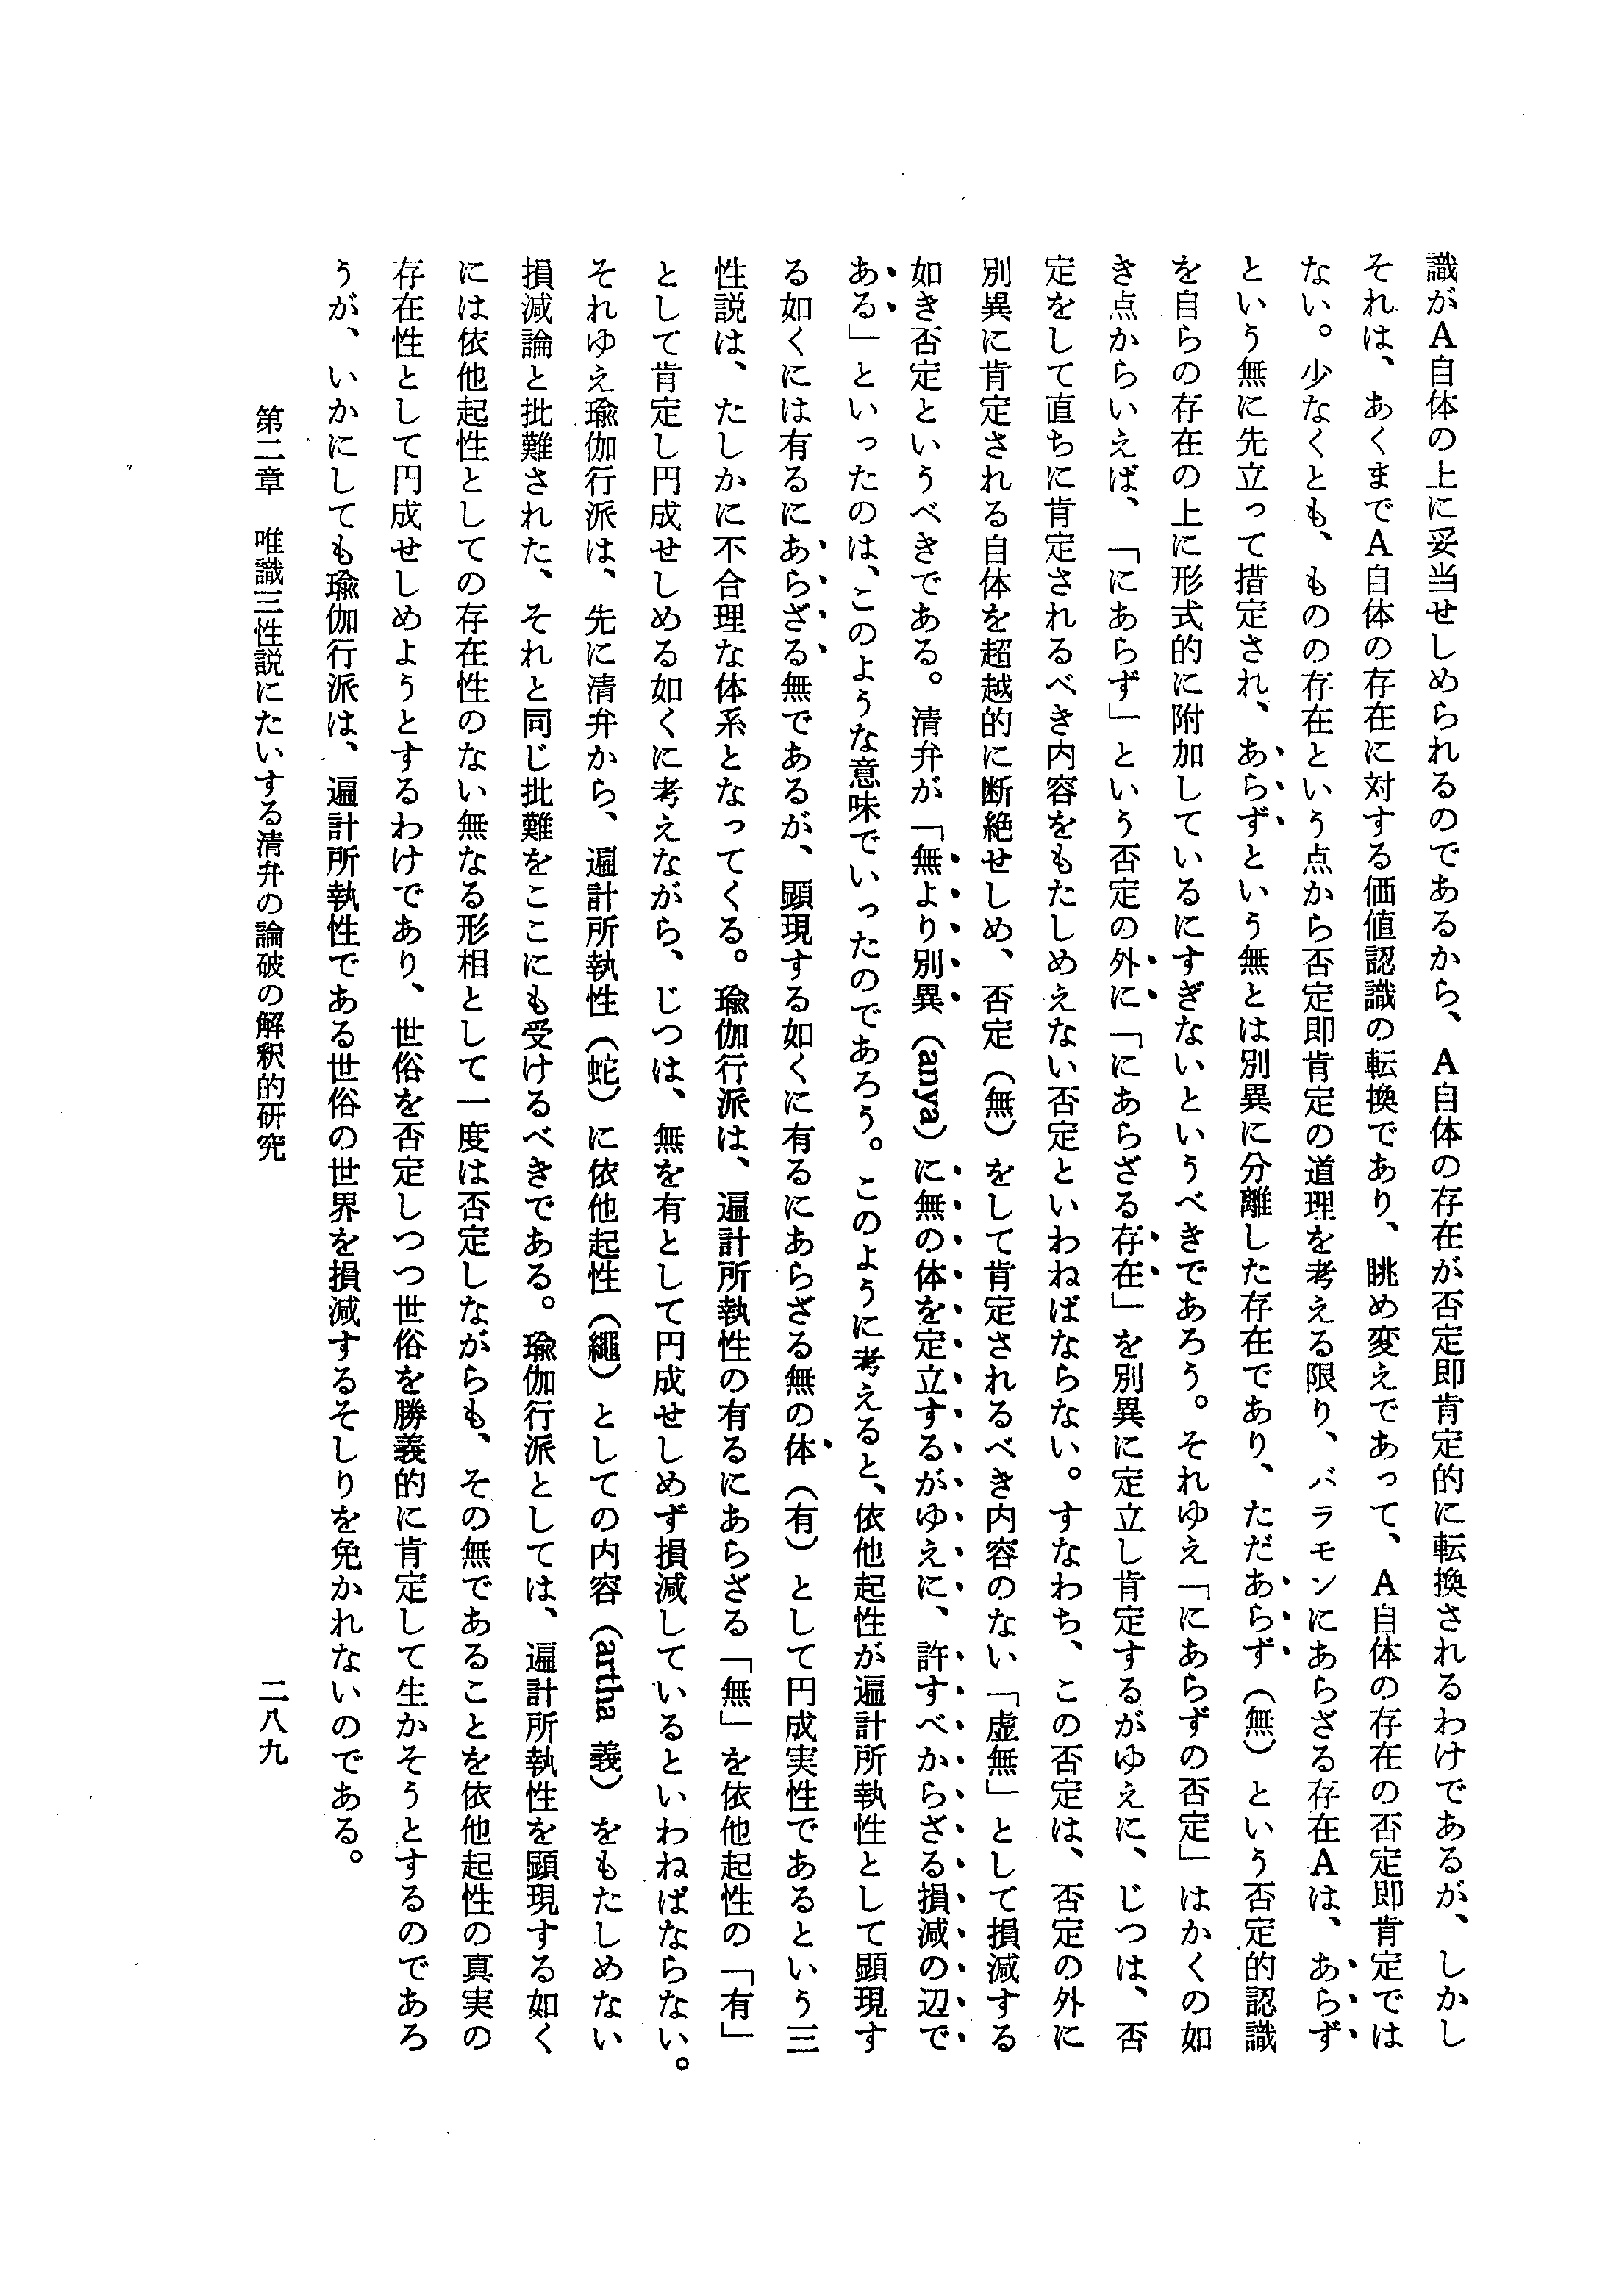 識がA自体の上に妥当せしめられるのであるから、A自体の存在が否定即肯定的に転換されるわけであるが、しかし
それは、あくまでA自体の存在に対する価値認識の転換であり、眺め変えであって、A自体の存在の否定即肯定では
ない。少なくとも、ものの存在という点から否定即肯定の道理を考える限り、バラモンにあらざる存在Aは、あらず
という無に先立って措定され、あらずという無とは別異に分離した存在であり、ただあらず（無）という否定的認識
を自らの存在の上に形式的に附加しているにすぎないというべきであろう。それゆえ「にあらずの否定」はかくの如
き点からいえば、「にあらず」という否定の外に「にあらざる存在」を別異に定立し肯定するがゆえに、じつは、否
定をして直ちに肯定されるべき内容をもたしめえない否定といわねばならない。すなわち、この否定は、否定の外に
別異に肯定される自体を超越的に断絶せしめ、否定（無）をして肯定されるべき内容のない「虚無」として損減する
如き否定というべきである。清弁が「無より別異（anya）に無の体を定立するがゆえに、許すべからざる損減の辺で
ある」といったのは、このような意味でいったのであろう。このように考えると、依他起性が遍計所執性として顕現す
る如くには有るにあらざる無であるが、顕現する如くに有るにあらざる無の体（有）として円成実性であるという三
性説は、たしかに不合理な体系となってくる。瑜伽行派は、遍計所執性の有るにあらざる「無」を依他起性の「有」
として肯定し円成せしめる如くに考えながら、じつは、無を有として円成せしめず損減しているといわねばならない。
それゆえ瑜伽行派は、先に清弁から、遍計所執性（蛇）に依他起性（繩）としての内容（artha 義）をもたしめない
損減論と批難された、それと同じ批難をここにも受けるべきである。瑜伽行派としては、遍計所執性を顕現する如く
には依他起性としての存在性のない無なる形相として一度は否定しながらも、その無であることを依他起性の真実の
存在性として円成せしめようとするわけであり、世俗を否定しつつ世俗を勝義的に肯定して生かそうとするのであろ
うが、いかにしても瑜伽行派は、遍計所執性である世俗の世界を損減するそしりを免かれないのである。
第二章　唯識三性説にたいする清弁の論破の解釈的研究
二八九